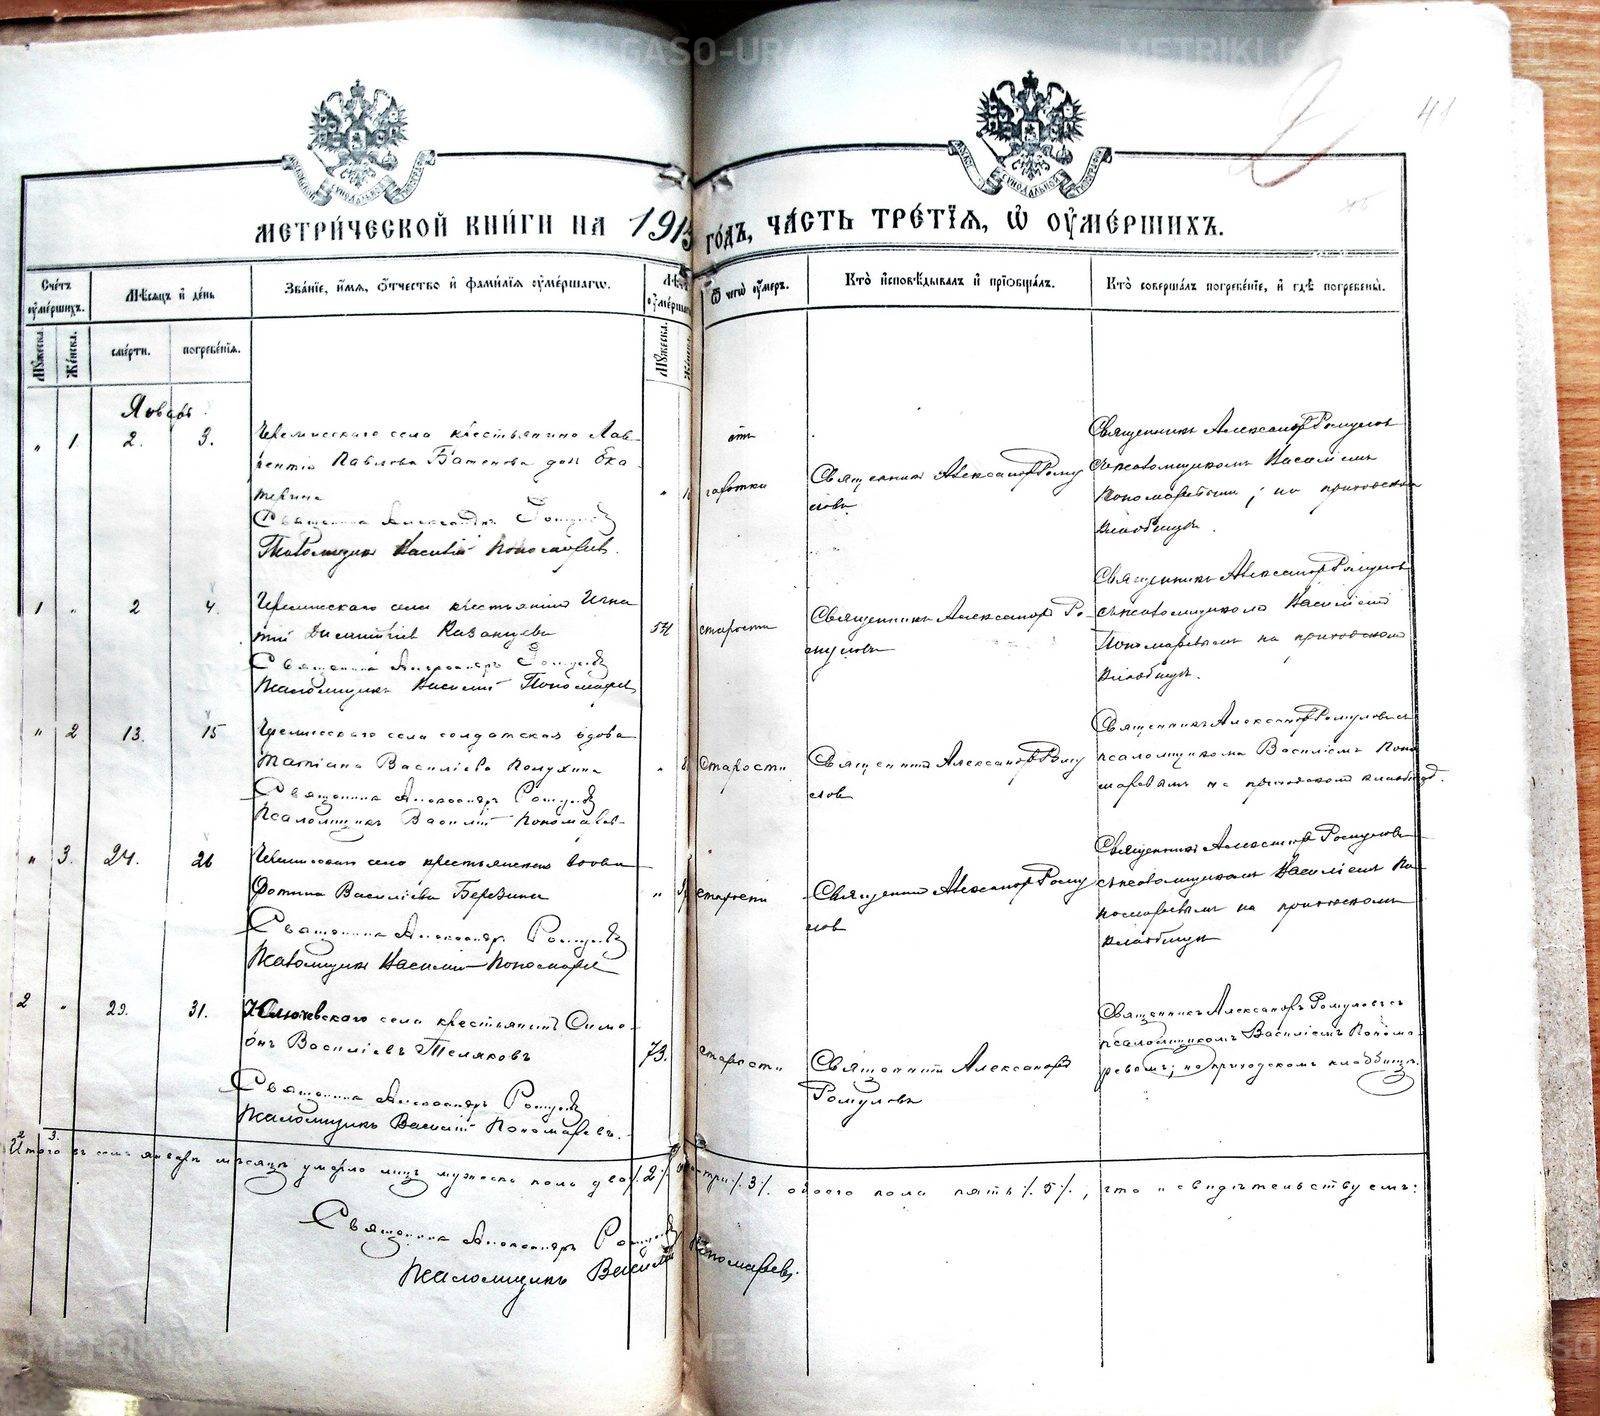 METRIKI.GASO-URAL.RU
METRIKI.GASO-URAL.RU
41
МЕТРИ́ЧЕСКОЙ КНИ́ГИ НА 1913 ГО́ДЪ, ЧА́СТЬ ТРЕ́ТЇѦ, Ѡ҆ ОУ҆МЕ́РШИХЪ.
Сче́тъ оу҆ме́ршихъ.
Мѣ́сѧцъ и҆ де́нь
Зва́нїе, и҆́мѧ, ѻ҆́тчество и҆ фами́лїѧ оу҆ме́ршагѡ.
Ѿ чегѡ̀ оу҆́меръ.
Кто̀ и҆сповѣ́дывалъ и҆ прїѡбща́лъ.
Кто̀ соверша́лъ погребе́нїе, и҆ гдѣ̀ погребены̀.
Мꙋ́жеска.
Же́нска.
сме́рти.
погребе́нїѧ.
Мꙋ́жеска.
Январь.
" 1 2. 3.
Черемисскаго села крестьянина Лав-
рентія Павлова дочь Ека-
терина
Священникъ Александръ Ромуловъ
Псаломщикъ Василій Пономаревъ.
отъ
Священникъ Александръ Рому
ловъ
Священникъ Александръ Ромуловъ
съ псаломщикомъ Василіемъ
Пономаревымъ; на приходскомъ
кладбищѣ.
1 " 2 4.
Черемисскаго села крестьянинъ Игна
тій Димитріевъ Казанцевъ
Священникъ Александръ Ромуловъ
Псаломщикъ Василій Пономаревъ
54
старости
Священникъ Александръ Ро-
муловъ
Священникъ Александръ Ромуловъ
съ псаломщикомъ Василіемъ
Пономаревымъ на приходскомъ
кладбищѣ.
" 2 13. 15
Черемисскаго села солдатская вдова
Татіана Василіева
Священникъ Александръ Ромуловъ
Псаломщикъ Василій Пономарев-
старости
Священникъ Александръ Рому
ловъ
Священникъ Александръ Ромуловъ съ
псаломщикомъ Василіемъ Поно
маревымъ на приходскомъ кладбищѣ.
" 3. 24. 26
Черемисскаго села крестьянская вдова
Фотина Василіева Березина
Священникъ Александръ Ромуловъ
Псаломщикъ Василій Пономаревъ
"
старости
Священникъ Александръ Рому
ловъ
Священникъ Александръ Ромуловъ
съ псаломщикомъ Василіемъ По
номаревымъ на приходскомъ
кладбищѣ
2 " 29. 31.
Клюевскаго села крестьянинъ Симе-
онъ Василіевъ Теляковъ
Священникъ Александръ Ромуловъ
Псаломщикъ Василій Пономаревъ.
73.
старости
Священникъ Александръ
Ромуловъ
Священникъ Александръ Ромуловъ съ
псаломщикомъ Василіемъ Понома-
ревымъ; на приходскомъ кладбищѣ.
2 3.
Итого въ семъ январѣ мѣсяцѣ умерло лицъ мужеска пола два /.2./ три /.3./. обоего пола пять /.5./., что и свидѣтельствуемъ:
Священникъ Александръ Ромуловъ
Псаломщикъ Василій Пономаревъ.
METRIKI.GASO